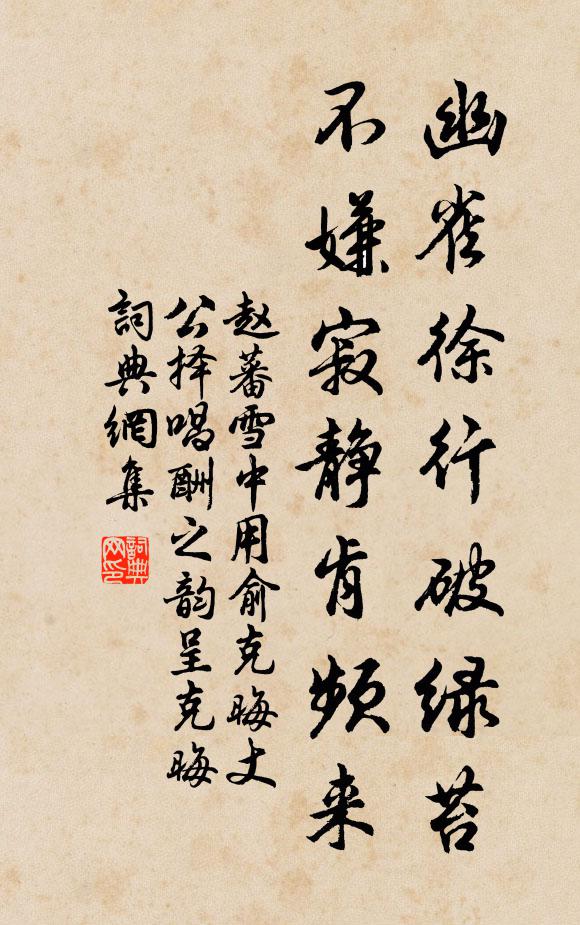 幽雀徐行破绿苔
不嫌寂静肯频来
赵蕃雪中用俞克晦丈
公择唱酬之韵呈克晦
詞典網集
詞典网印